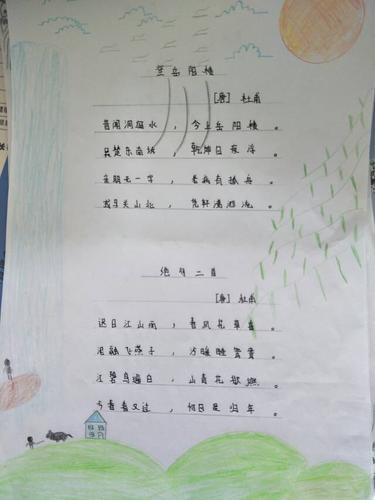 登岳阳楼
[唐] 杜甫
昔闻洞庭水，今上岳阳楼。
吴楚东南坼，乾坤日夜浮。
亲朋无一字，老病有孤舟。
戎马关山北，凭轩涕泗流。
绝句二首
[唐] 杜甫
迟日江山丽，春风花草香。
泥融飞燕子，沙暖睡鸳鸯。
江碧鸟逾白，山青花欲燃。
今春看又过，何日是归年。